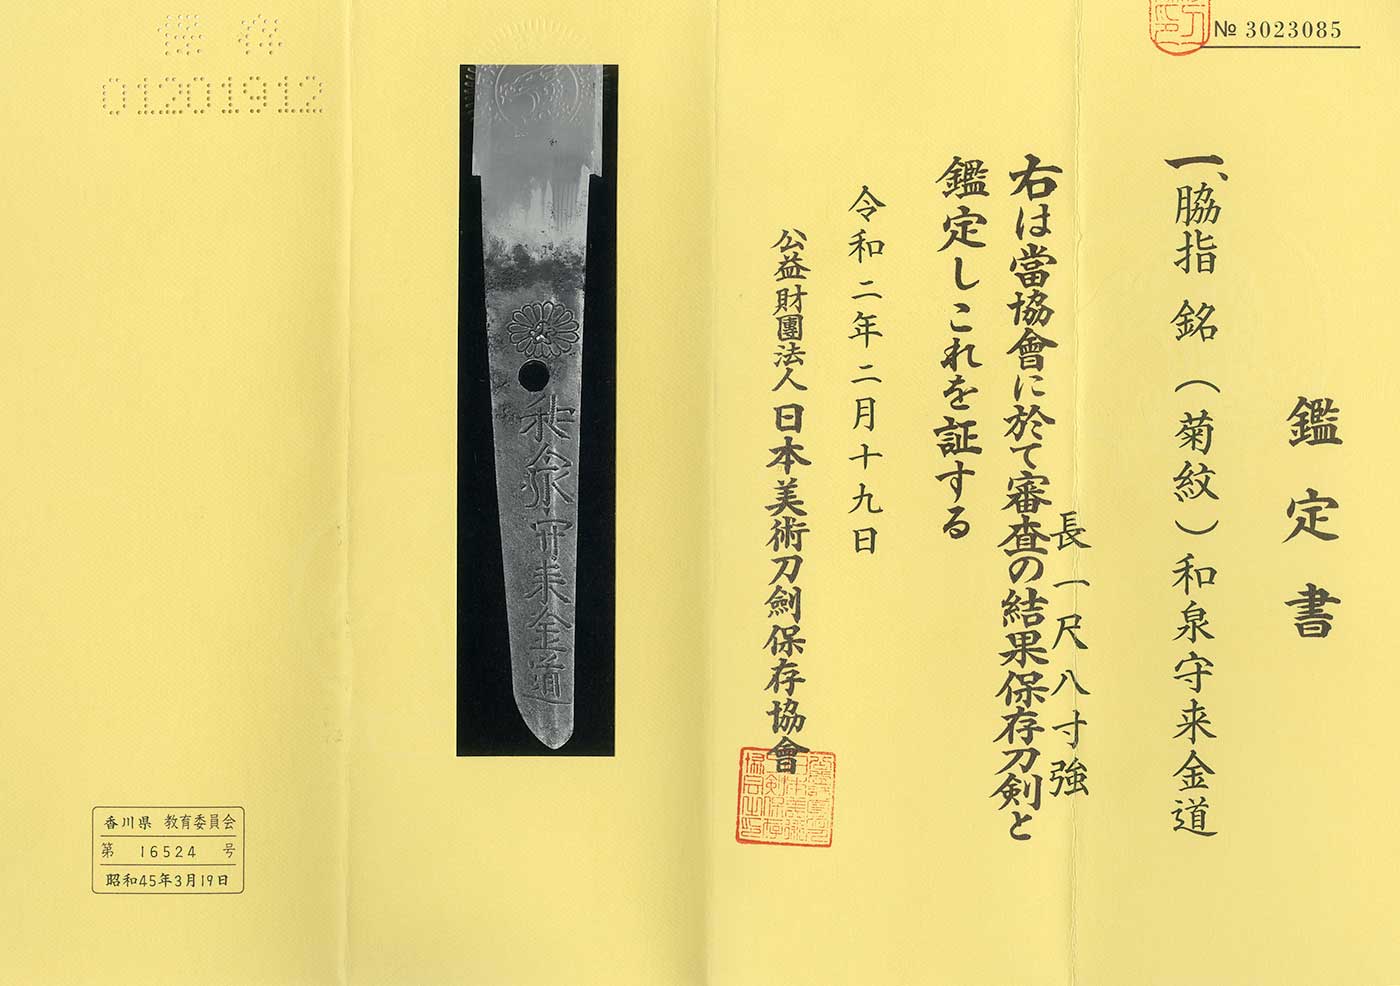 № 3023085
鑑定書
一、脇指 銘(菊紋)和泉守来金道
長一尺八寸強
右は當協會に於て審査の結果保存刀剣と
鑑定しこれを証する
令和二年二月十九日
公益財團法人日本美術刀劍保存協會
和泉守来金道
保存
01201912
香川県 教育委員会
第 16524 号
昭和45年3月19日